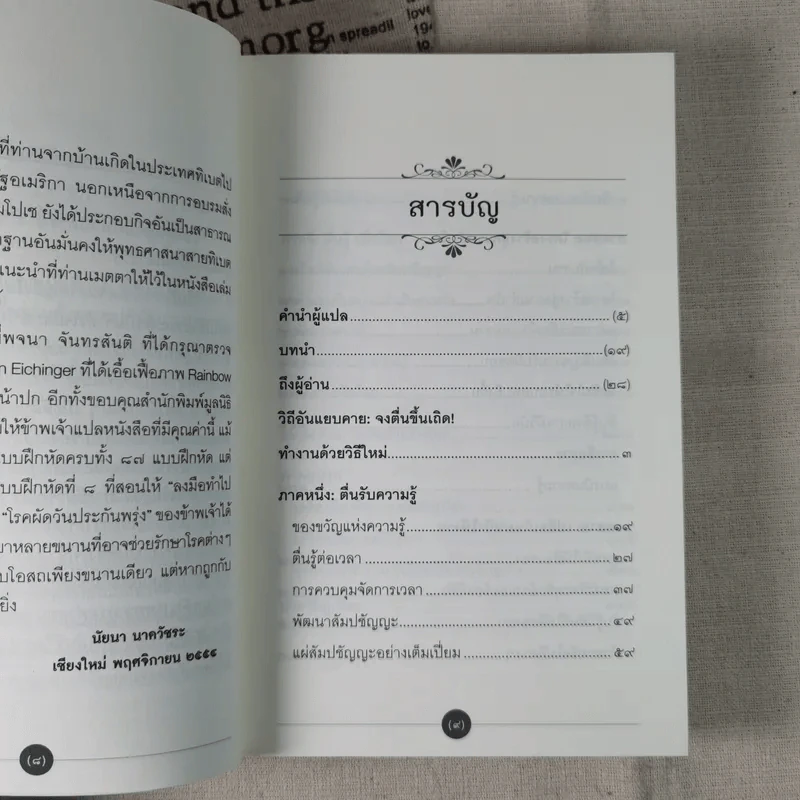 and th
morg
n spreadil
love
194
to
ที่ท่านจากบ้านเกิดในประเทศทิเบตไป
ฐอเมริกา นอกเหนือจากการอบรมสั่ง
มโปเช ยังได้ประกอบกิจอันเป็นสาธารณ
ฐานอันมั่นคงให้พุทธศาสนาสายทิเบต
แนะนำที่ท่านเมตตาให้ไว้ในหนังสือเล่ม
ที่พจนา จันทรสันติ ที่ได้กรุณาตรวจ
Eichinger ที่ได้เอื้อเฟื้อภาพ Rainbow
น้าปก อีกทั้งขอบคุณสำนักพิมพ์มูลนิธิ
ให้ข้าพเจ้าแปลหนังสือที่มีคุณค่านี้ แม้
แบบฝึกหัดครบทั้ง ๘๗ แบบฝึกหัด แต่
แบบฝึกหัดที่ ๘ ที่สอนให้ "ลงมือทำไป
"โรคผัดวันประกันพรุ่ง" ของข้าพเจ้าได้
ยาหลายขนานที่อาจช่วยรักษาโรคต่างๆ
บโอสถเพียงขนานเดียว แต่หากถูกกับ
ยิ่ง
นัยนา นาควัชระ
เชียงใหม่ พฤศจิกายน ๒๕๕๔
(๘)
สารบัญ
คำนำผู้แปล (๕)
บทนำ (๑๙)
ถึงผู้อ่าน (๒๘)
วิถีอันแยบคาย: จงตื่นขึ้นเถิด!
ทำงานด้วยวิธีใหม่ ๓
ภาคหนึ่ง: ตื่นรับความรู้
ของขวัญแห่งความรู้ ๑๙
ตื่นรู้ต่อเวลา ๒๗
การควบคุมจัดการเวลา ๓๗
พัฒนาสัมปชัญญะ ๔๙
แผ่สัมปชัญญะอย่างเต็มเปี่ยม ๕๙
(๙)